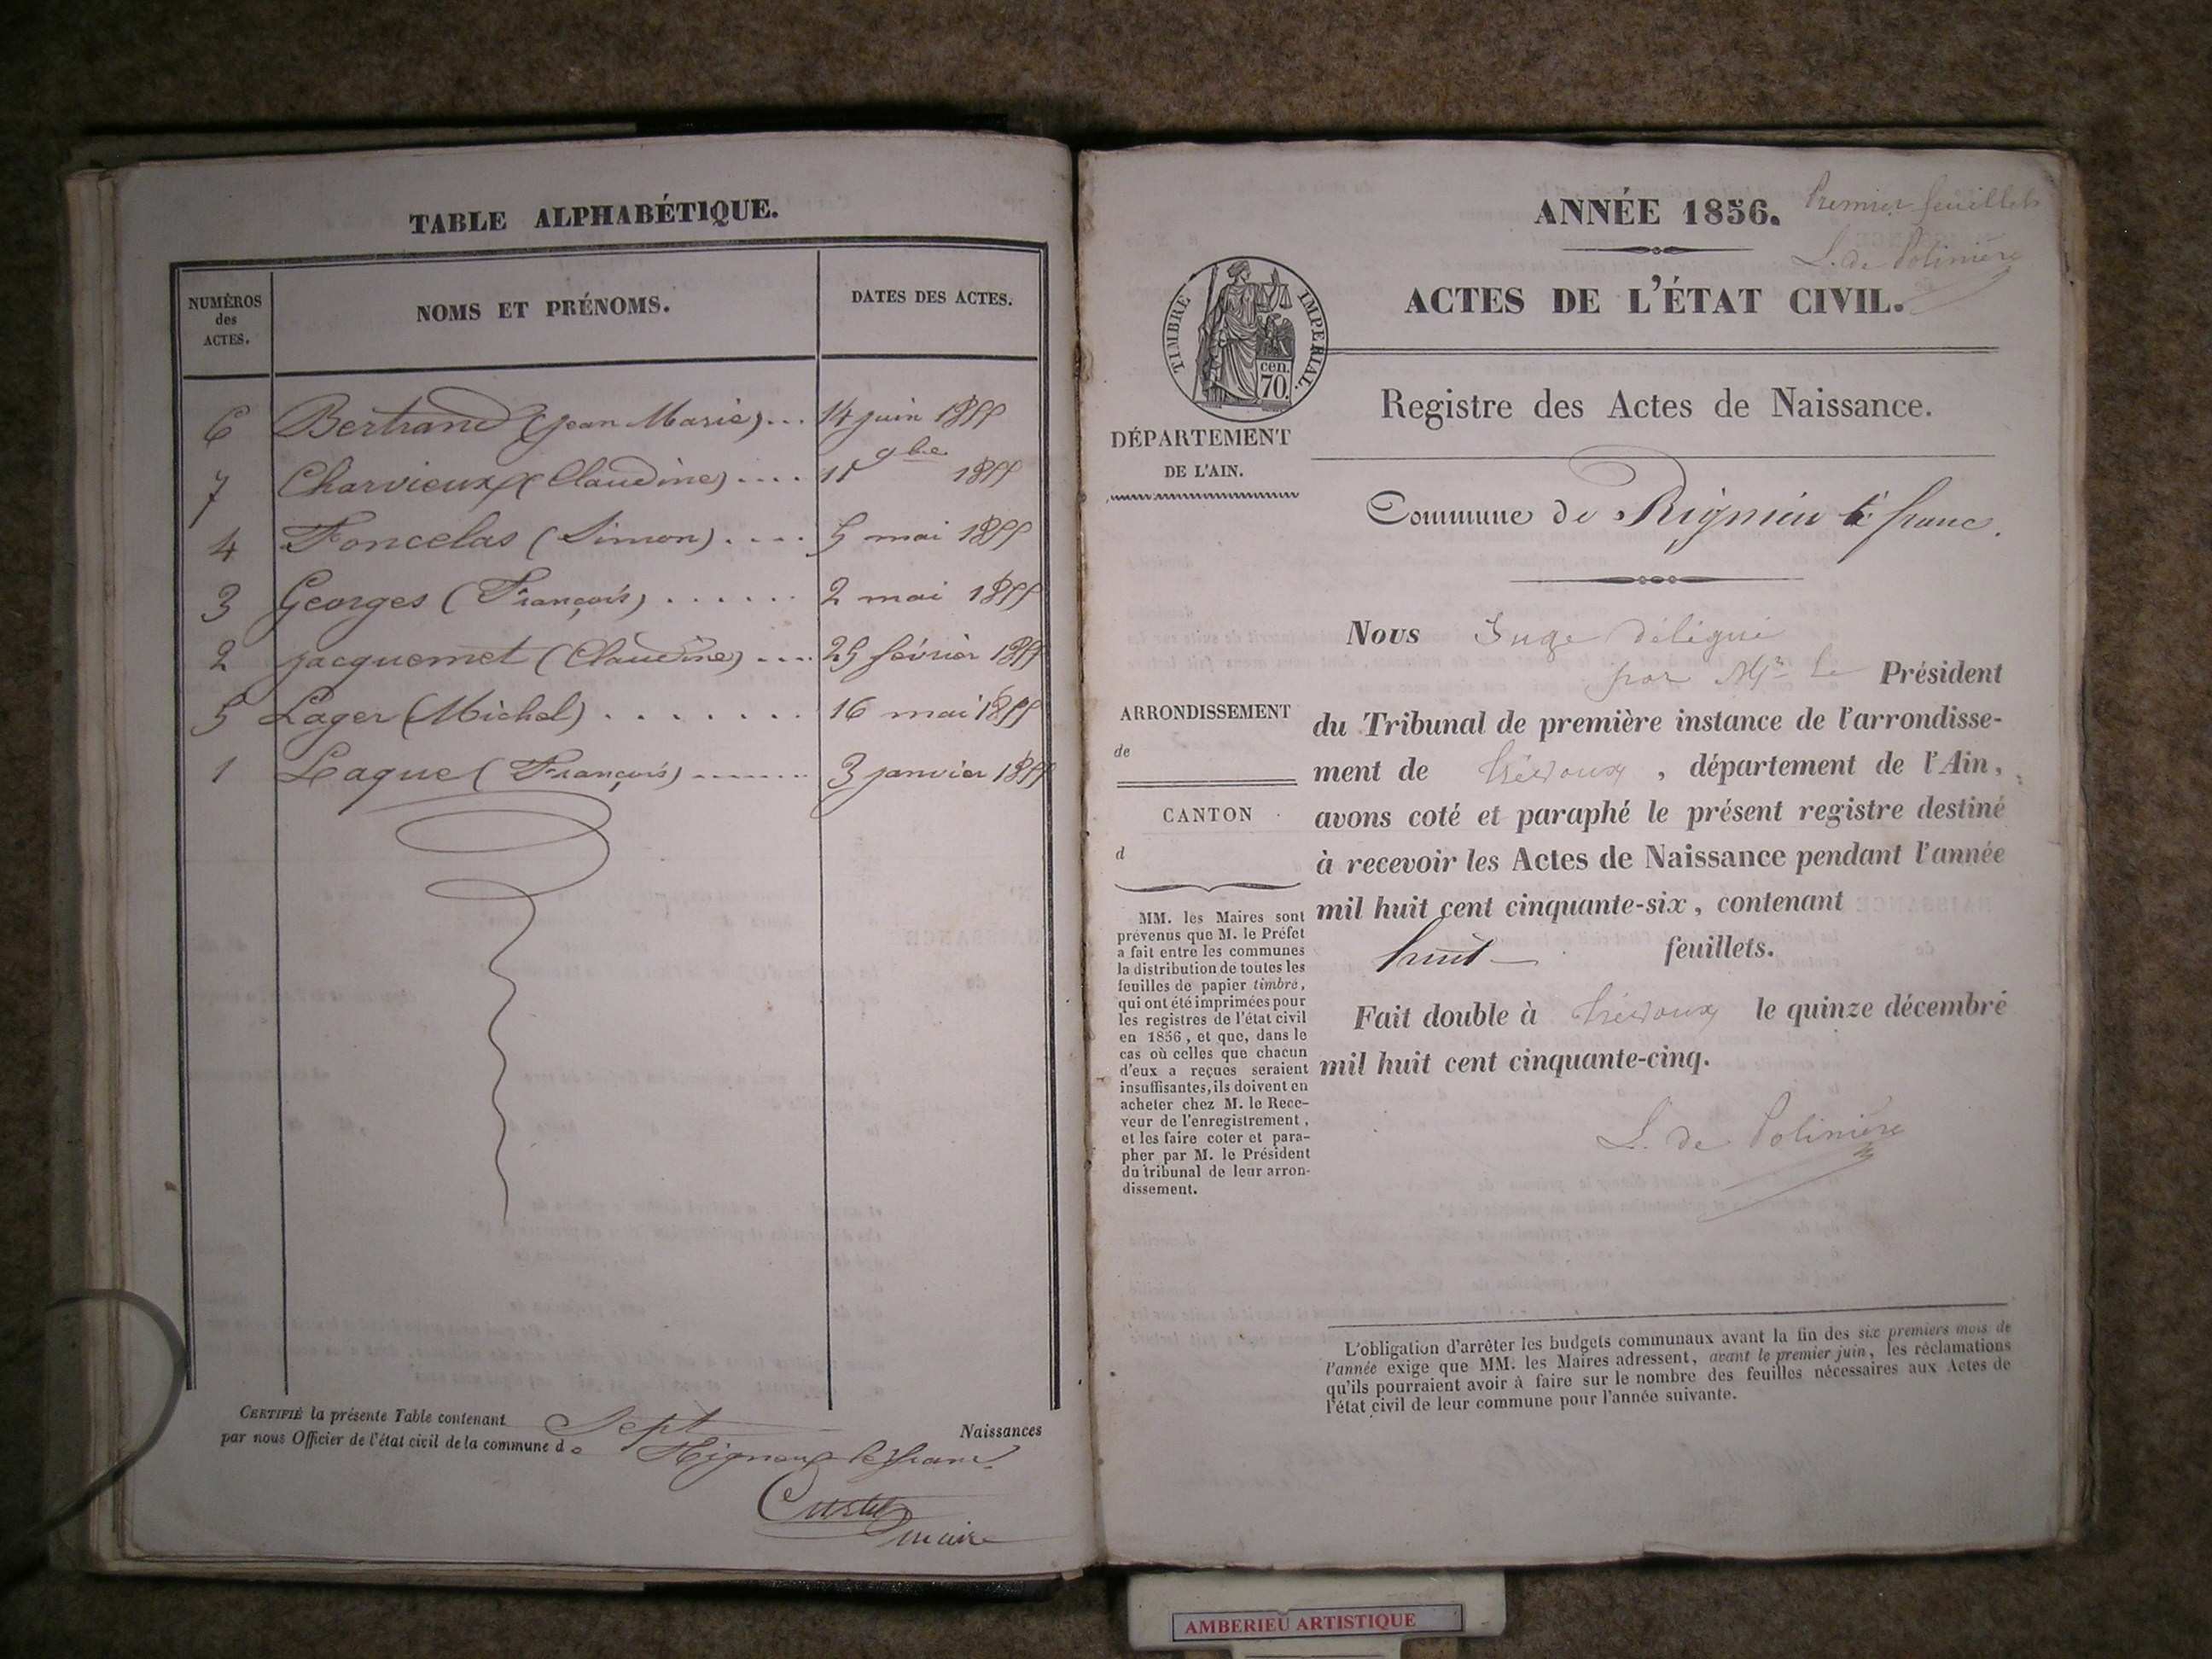 TABLE ALPHABÉTIQUE.
NUMÉROS des ACTES.
NOMS ET PRÉNOMS.
DATES DES ACTES.
6 Bertrand (jean Marie)... 14 juin 1855
7 Charvieux (Claudine).... 11 9bre 1855
4 Foncelas (Simon).... 5 mai 1855
3 Georges (François)...... 2 mai 1855
2 jacquemet (Claudine).... 25 février 1855
5 Lager (Michel)........ 16 mai 1855
1 Laque (François)........ 3 janvier 1855
CERTIFIÉ la présente Table contenant Sept Naissances
par nous Officier de l'état civil de la commune de Rigneux le franc.
maire
Premier feuillet
L. de Polinière
ANNÉE 1856.
ACTES DE L'ÉTAT CIVIL.
TIMBRE IMPERIAL.
cen.
70.
Registre des Actes de Naissance.
DÉPARTEMENT
DE L'AIN.
Commune de Rignieu le franc.
Nous Juge délégué
par Mr le Président
du Tribunal de première instance de l'arrondisse-
ment de Trévoux, département de l'Ain,
avons coté et paraphé le présent registre destiné
à recevoir les Actes de Naissance pendant l'année
mil huit cent cinquante-six, contenant
huit feuillets.
Fait double à Trévoux le quinze décembre
mil huit cent cinquante-cinq.
L. de Polinière
ARRONDISSEMENT
de
CANTON
d
MM. les Maires sont
prévenus que M. le Préfet
a fait entre les communes
la distribution de toutes les
feuilles de papier timbré,
qui ont été imprimées pour
les registres de l'état civil
en 1856, et que, dans le
cas où celles que chacun
d'eux a reçues seraient
insuffisantes, ils doivent en
acheter chez M. le Rece-
veur de l'enregistrement,
et les faire coter et para-
pher par M. le Président
du tribunal de leur arron-
dissement.
L'obligation d'arrêter les budgets communaux avant la fin des six premiers mois de
l'année exige que MM. les Maires adressent, avant le premier juin, les réclamations
qu'ils pourraient avoir à faire sur le nombre des feuilles nécessaires aux Actes de
l'état civil de leur commune pour l'année suivante.
AMBERIEU ARTISTIQUE